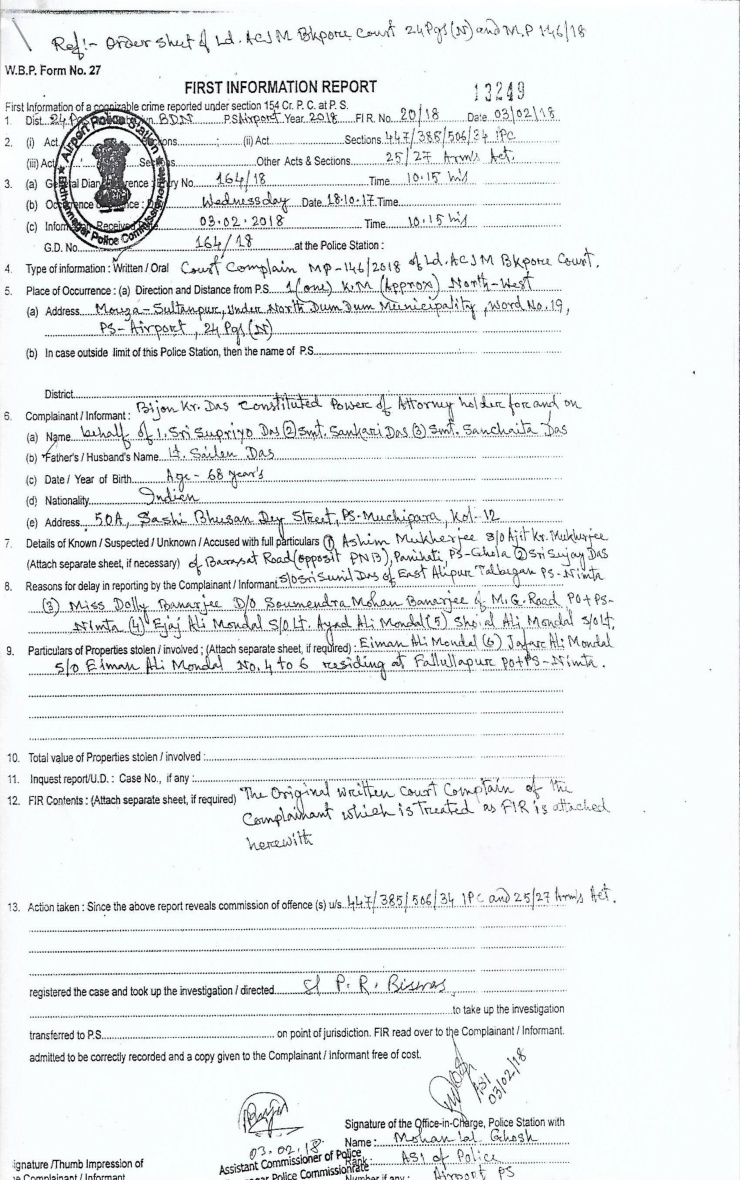 Ref:- Order sheet of Ld. ACJM Bkpore Court 24 Pgs (N) and M.P 146/18
W.B.P. Form No. 27
FIRST INFORMATION REPORT
13249
First Information of a cognizable crime reported under section 154 Cr. P. C. at P. S.
1. Dist. 24 P BDN P.S. Airport Year 2018 F.I.R. No. 20/18 Date 03/02/18
2. (i) Act Sections ; (ii) Act Sections 447/385/506/34 IPC
(iii) Act Sections Other Acts & Sections 25/27 Arms Act.
3. (a) General Diary Reference : Entry No. 164/18 Time 10.15 hrs
(b) Occurrence : Wednesday Date 18.10.17 Time
(c) Information Received 03.02.2018 Time 10.15 hrs
G.D. No. 164/18 at the Police Station :
Airport Police Station
Bidhannagar Police Commissionerate
4. Type of information : Written / Oral Court Complain MP-146/2018 of Ld. ACJM Bkpore Court.
5. Place of Occurrence : (a) Direction and Distance from P.S. 1 (one) K.M (Approx) North-West
(a) Address Mouza-Sultanpur, under North Dum Dum Municipality, Word No. 19,
PS-Airport, 24 Pgs (N)
(b) In case outside limit of this Police Station, then the name of P.S.
District
6. Complainant / Informant : Bijon Kr. Das Constituted Power of Attorney holder for and on
(a) Name behalf of 1. Sri Supriyo Das (2) Smt. Sankari Das (3) Smt. Sanchaita Das
(b) *Father's / Husband's Name Lt. Sailen Das
(c) Date / Year of Birth Age - 68 year's
(d) Nationality Indian
(e) Address 50A, Sashi Bhusan Dey Street, PS-Muchipara, Kol-12
7. Details of Known / Suspected / Unknown / Accused with full particulars (1) Ashim Mukherjee S/O Ajit Kr. Mukherjee
(Attach separate sheet, if necessary) of Barasat Road (opposit PNB), Panihati PS-Ghola (2) Sri Sujay Das
8. Reasons for delay in reporting by the Complainant / Informant S/O Sri Sunil Das of East Alipur Talbagan PS-Nimta
(3) Miss Dolly Banarjee D/O Soumendra Mohan Banarjee of M.G. Road PO+PS-
Nimta (4) Ejaj Ali Mondal S/O Lt. Ayad Ali Mondal (5) Shoial Ali Mondal S/O Lt.
9. Particulars of Properties stolen / involved ; (Attach separate sheet, if required) : Eiman Ali Mondal (6) Jafar Ali Mondal
S/O Eiman Ali Mondal No. 4 to 6 residing at Fallullapur PO+PS-Nimta.
10. Total value of Properties stolen / involved :
11. Inquest report/U.D. : Case No., if any :
12. FIR Contents : (Attach separate sheet, if required) The Original Written Court Complain of the
Complainant which is Treated as FIR is attached
herewith
13. Action taken : Since the above report reveals commission of offence (s) u/s. 447/385/506/34 IPC and 25/27 Arms Act.
registered the case and took up the investigation / directed SI P. R. Biswas
to take up the investigation
transferred to P.S. on point of jurisdiction. FIR read over to the Complainant / Informant.
admitted to be correctly recorded and a copy given to the Complainant / Informant free of cost.
ASI
03/02/18
Signature of the Office-in-Charge, Police Station with
03.02.18
Name : Mohan lal Ghosh
Assistant Commissioner of Police
Rank : ASI of Police
Police Commissionerate
ignature /Thumb Impression of
Number if any : Airport PS
e Complainant / Informant